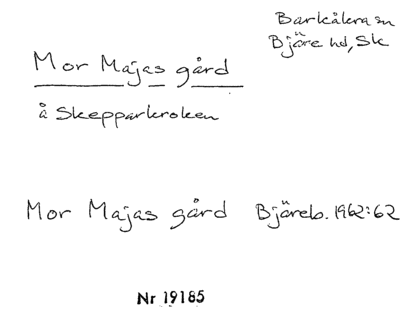 Barkåkra sn
Bjäre hd, Sk
Mor Majas gård
å Skepparkroken
Mor Majas gård Bjäreb. 1962:62
Nr 19185